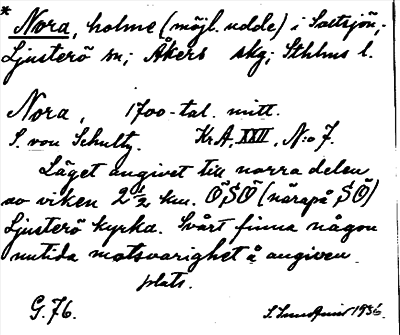 * Nora, holme (möjl. udde) i Saltsjön,
Ljusterö sn; Åkers skg; Sthlms l.
Nora, 1700-tal. mitt.
S. von Schultz. KrA, XXII, N:o 7.
Läget angivet till norra delen
av viken 2 1/2 km. ÖSÖ (närapå SÖ)
Ljusterö kyrka. Svårt finna någon
nutida motsvarighet å angiven
plats.
G. 76. 1936.